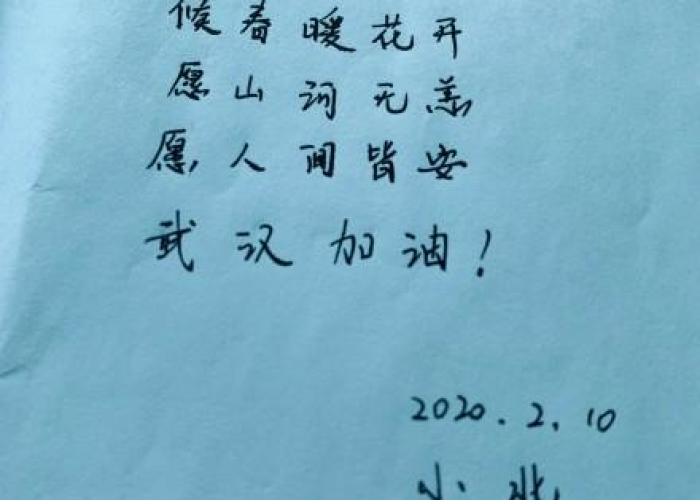 候春暖花开
愿山河无恙
愿人间皆安
武汉加油!
2020.2.10
小